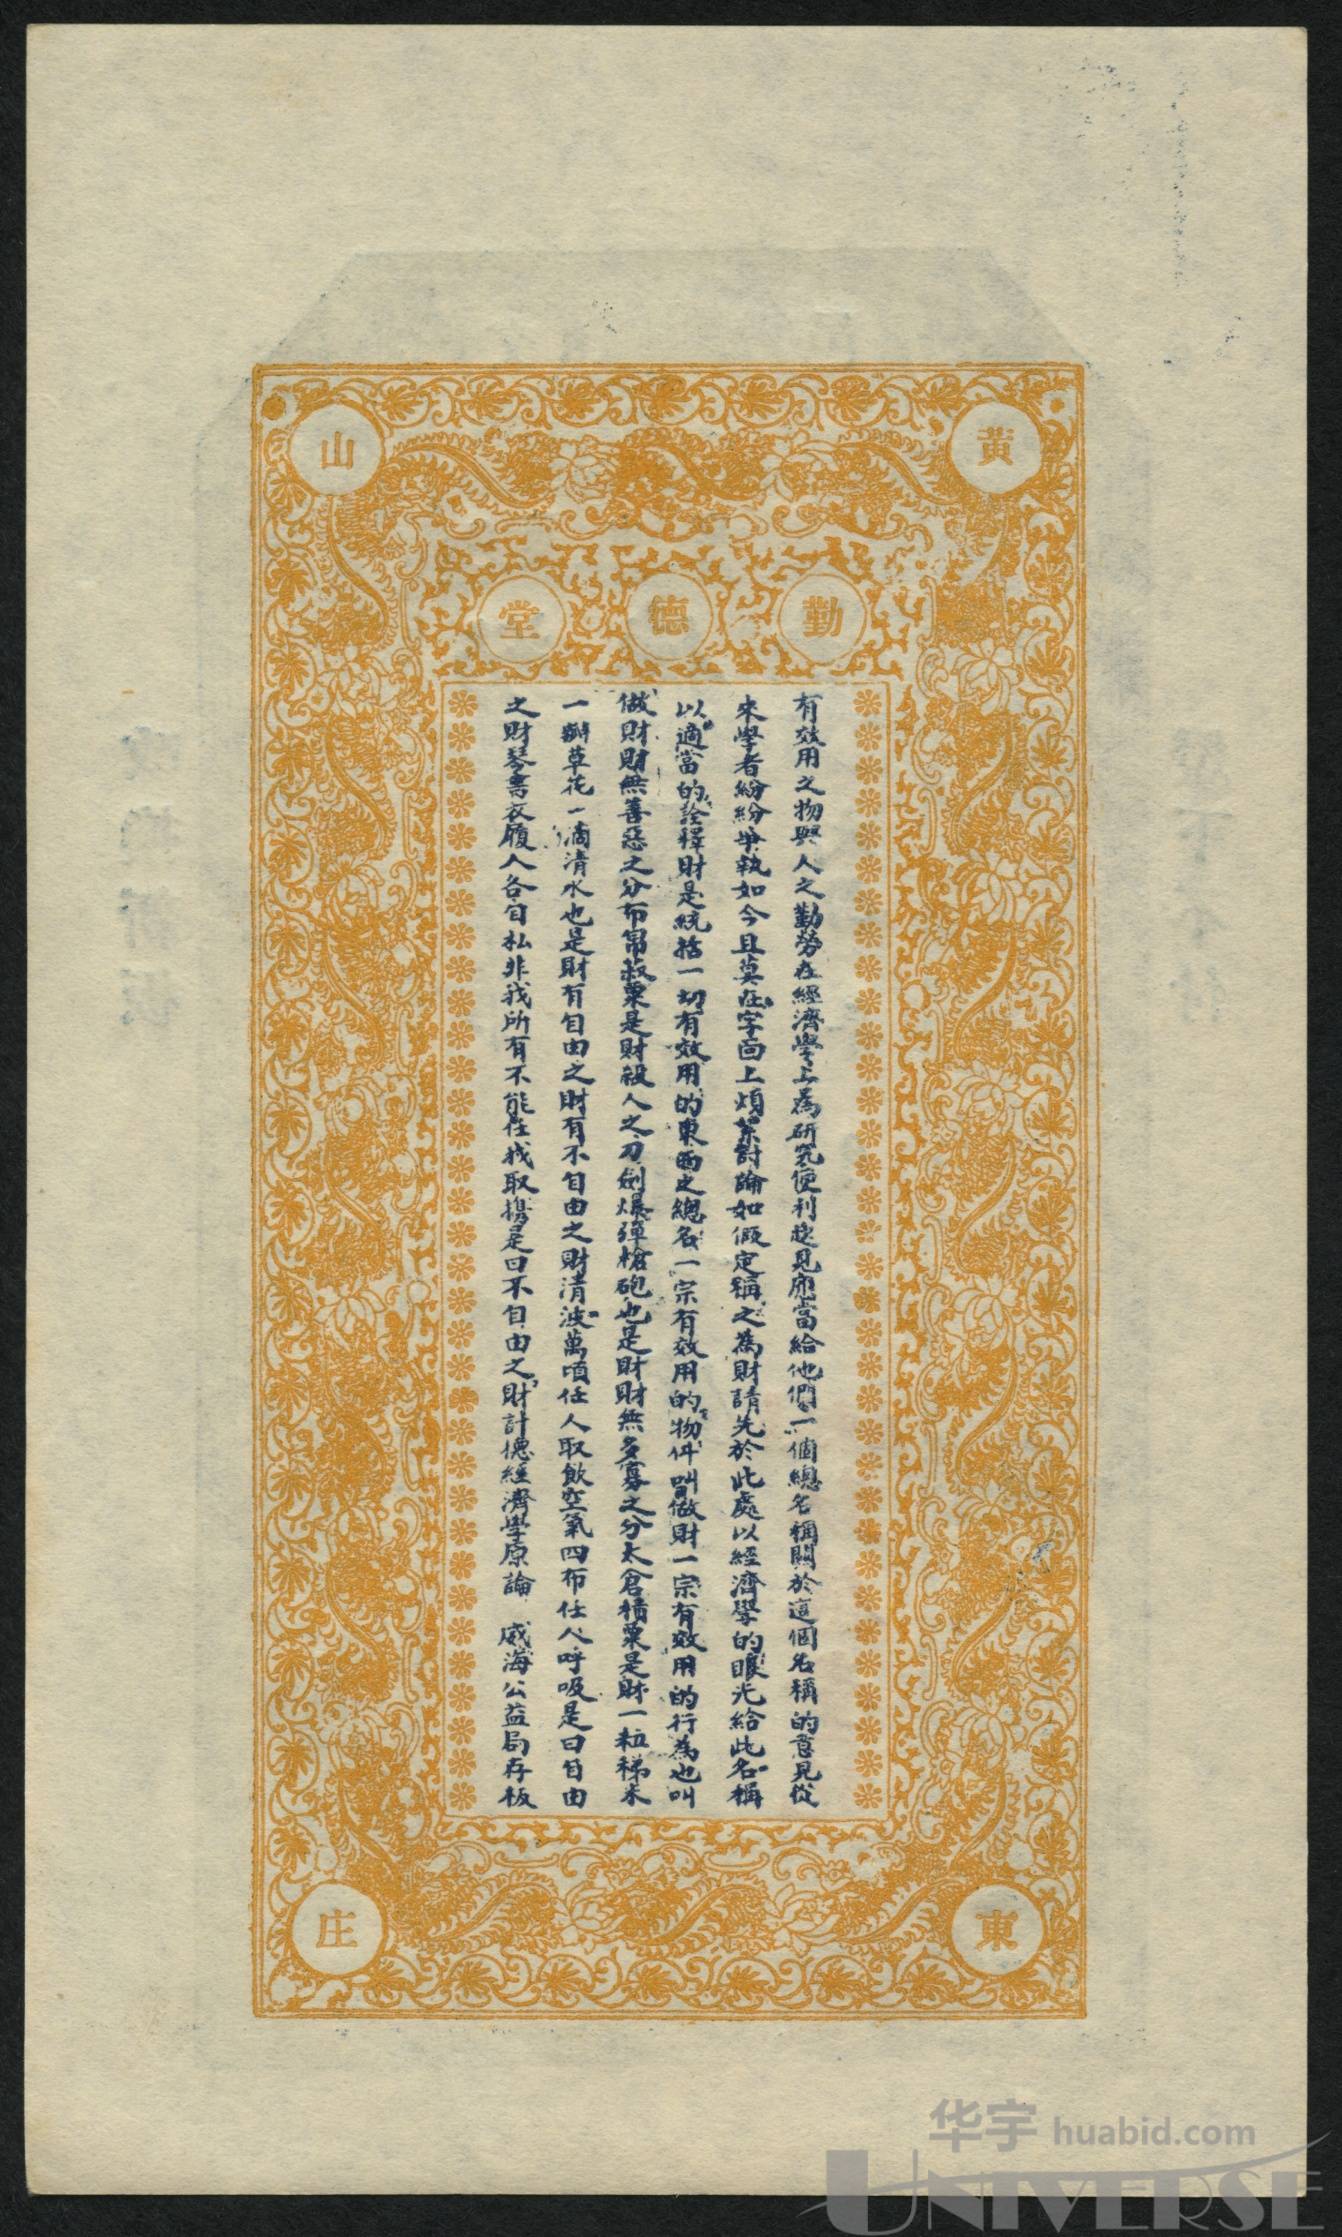 黃
山
勤德堂
有效用之物與人之勤勞在經濟學上為研究便利起見應當給他們一個總名稱關於這個名稱的意見從
來學者紛紛爭執如今且莫在字面上煩絮討論如假定稱之為財請先於此處以經濟學的眼光給此名稱
以適當的詮釋財是統括一切有效用的東西之總名一宗有效用的物件叫做財一宗有效用的行為也叫
做財財無善惡之分布帛菽粟是財殺人之刀劍爆彈槍砲也是財財無多寡之分太倉積粟是財一粒稊米
一瓣草花一滴清水也是財有自由之財有不自由之財清波萬頃任人取飲空氣四布任人呼吸是曰自由
之財琴書衣履人各自私非我所有不能任我取携是曰不自由之財計德經濟學原論 威海公益局存板
東
庄
华宇 huabid.com
UNIVERSE